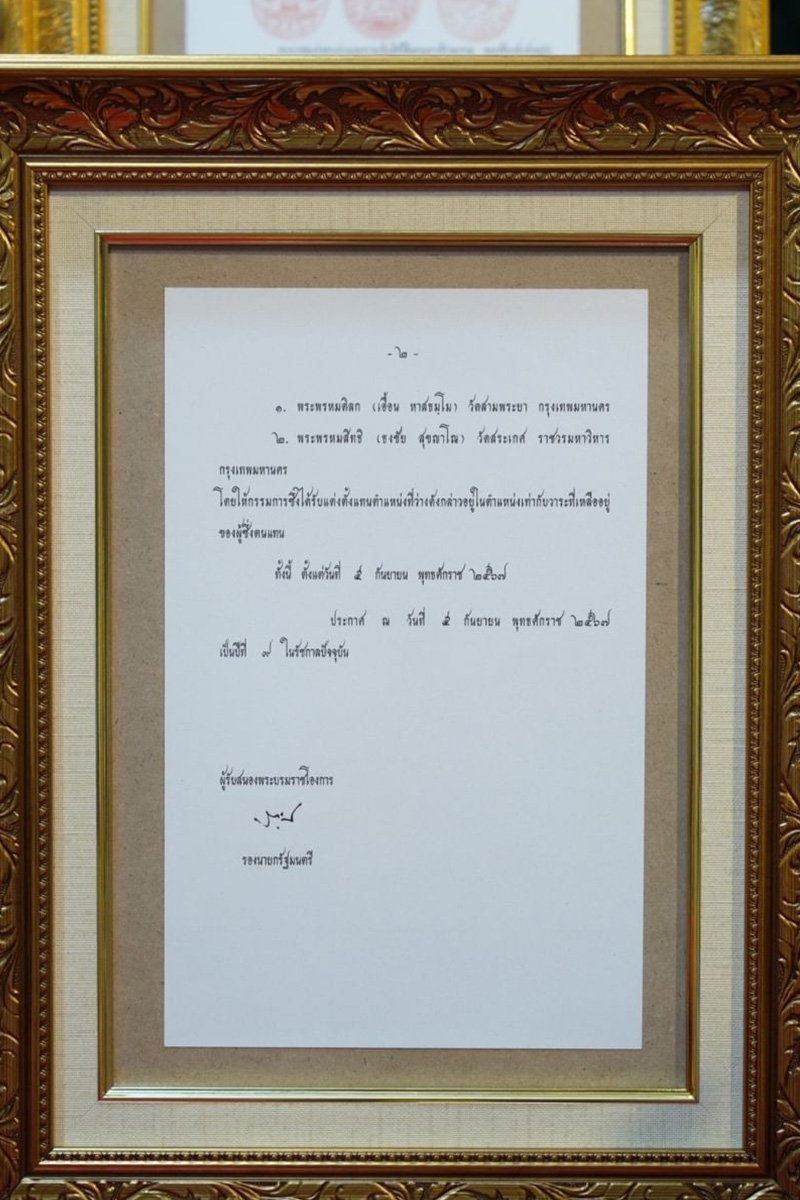 - ๒ -
๑. พระพรหมดิลก (เอื้อน หาสธมฺโม) วัดสามพระยา กรุงเทพมหานคร
๒. พระพรหมสิทธิ (ธงชัย สุขญาโณ) วัดสระเกศ ราชวรมหาวิหาร
กรุงเทพมหานคร
โดยให้กรรมการซึ่งได้รับแต่งตั้งแทนตำแหน่งที่ว่างดังกล่าวอยู่ในตำแหน่งเท่ากับวาระที่เหลืออยู่
ของผู้ซึ่งตนแทน
ทั้งนี้ ตั้งแต่วันที่ ๕ กันยายน พุทธศักราช ๒๕๖๗
ประกาศ ณ วันที่ ๕ กันยายน พุทธศักราช ๒๕๖๗
เป็นปีที่ ๙ ในรัชกาลปัจจุบัน
ผู้รับสนองพระบรมราชโองการ
รองนายกรัฐมนตรี